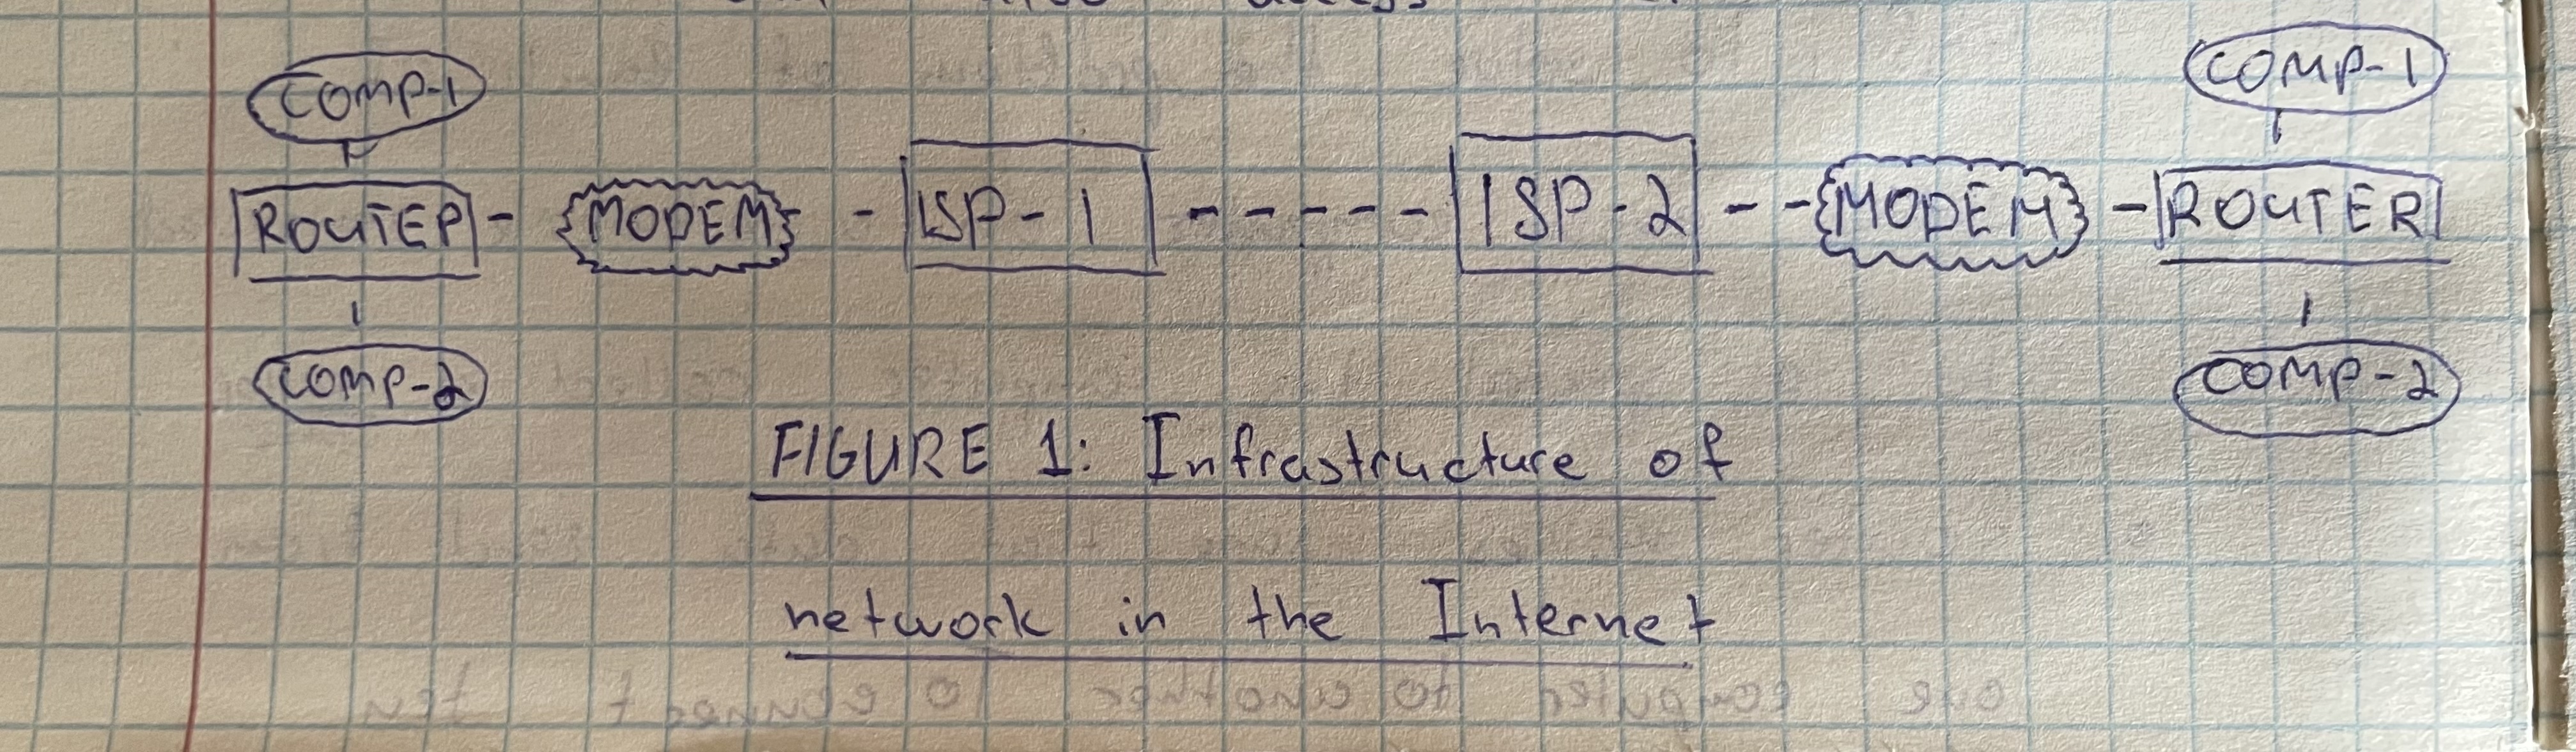 access
COMP-1
COMP-1
ROUTER - MODEM - ISP-1 - - - - - ISP-2 - - MODEM - ROUTER
COMP-2
COMP-2
FIGURE 1: Infrastructure of
network in the Internet